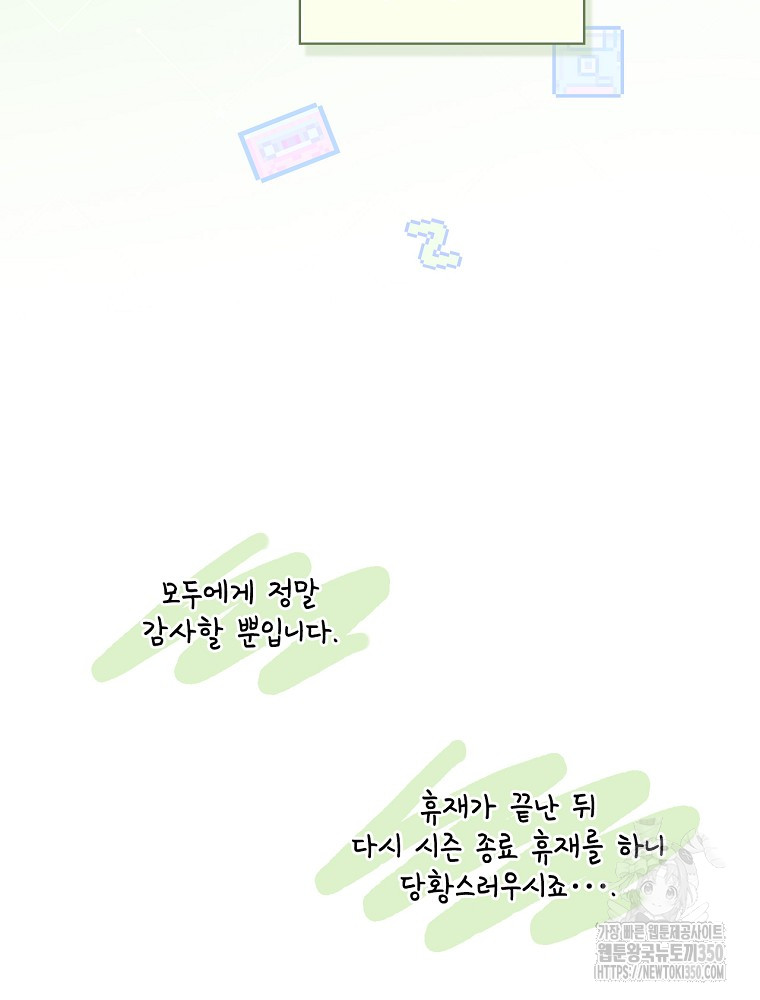 모두에게 정말
감사할 뿐입니다.
휴재가 끝난 뒤
다시 시즌 종료 휴재를 하니
당황스러우시죠···.
가장 빠른 웹툰제공사이트
웹툰왕국뉴토끼350
HTTPS://NEWTOKI350.COM